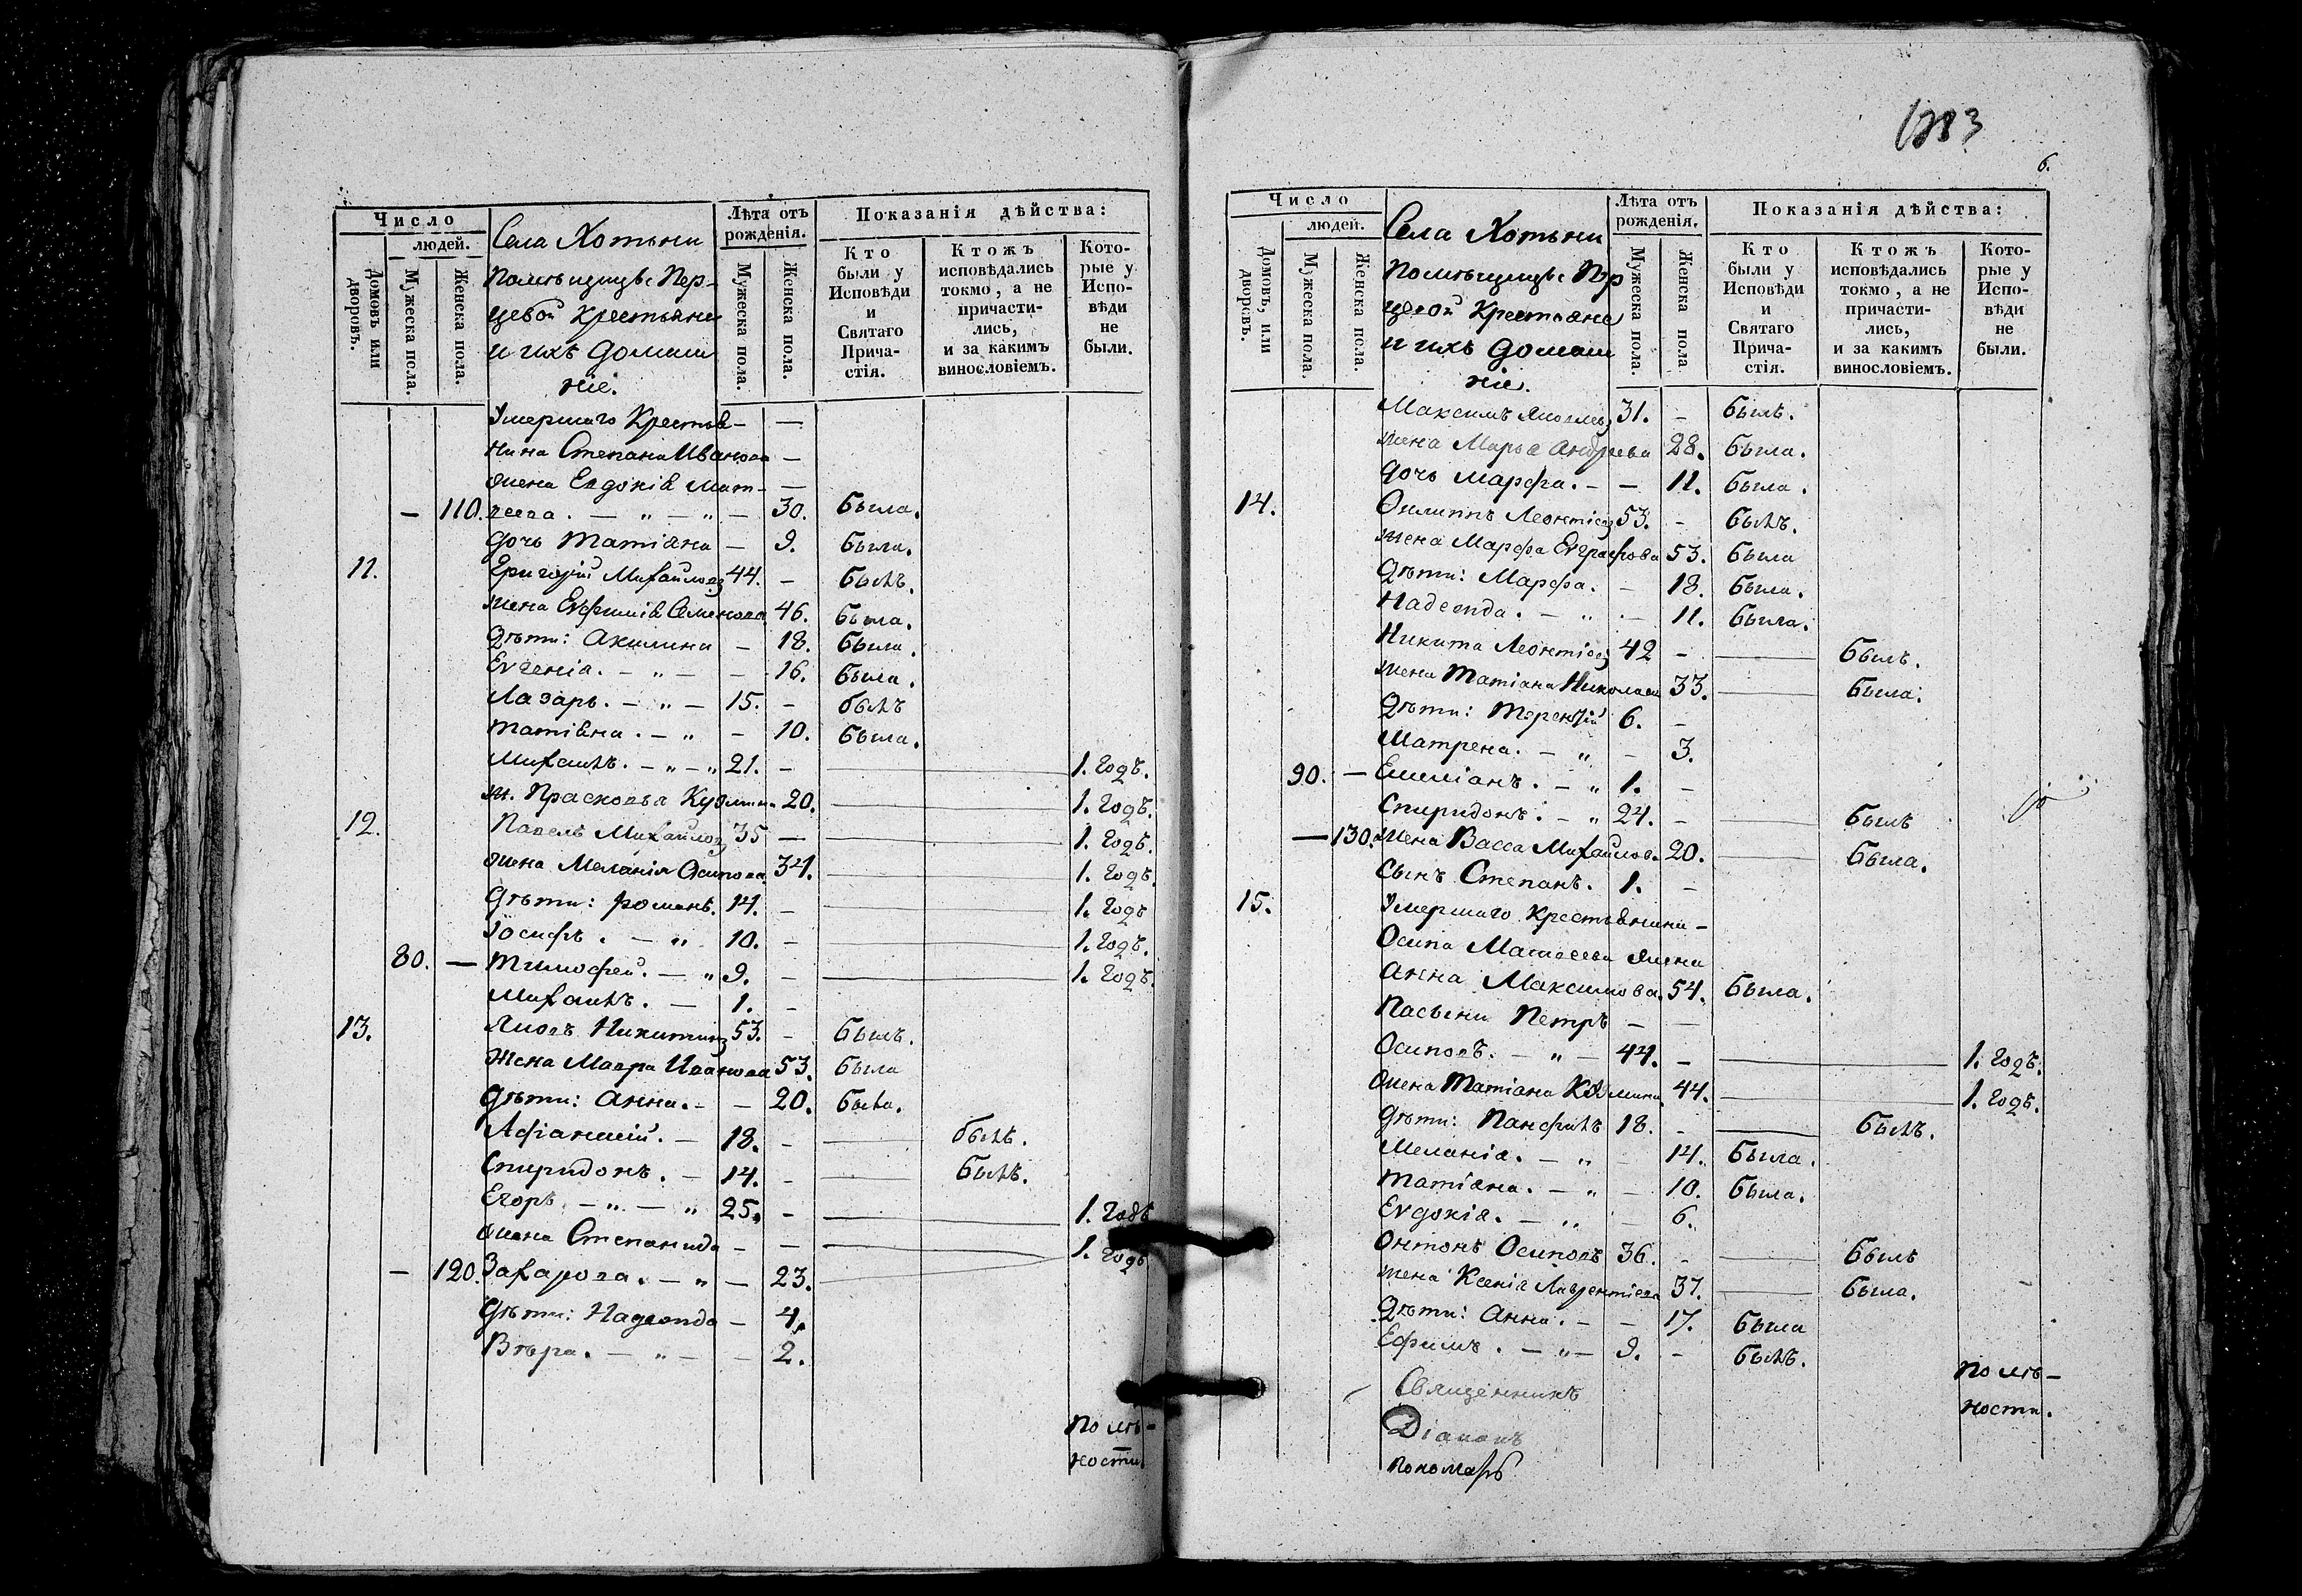 Число
людей.
Домовъ или дворовъ.
Мужеска пола.
Женска пола.
Села Хотыни
Помѣщицѣ Пер-
цевой Крестьяне
и ихъ домаш
ніе.
Лѣта отъ рожденія.
Мужеска пола.
Женска пола.
Показанія дѣйства:
Кто были у Исповѣди и Святаго Прича-стія.
Ктожъ исповѣдались токмо, а не причасти-лись, и за какимъ винословіемъ.
Кото-рые у Испо-вѣди не были.
Умершаго Крестья- —
нина Степана Иванова —
жена Евдокія Мат- —
— 110. веева. — „ — „ — 30. была.
дочь Татіана — 9. была.
11. Григорій Михайловъ 44. - былъ.
жена Евфимія Семенова 46. была.
Дѣти: Акилина — 18. была.
Евгенія. — „ — - 16. была.
Лазарь. — „ — 15. - былъ
Татіяна. — „ - 10. была.
Михаилъ. — „ — „ 21. - 1. годъ.
ж. Прасковья Кузмина 20. 1. годъ.
12. Павелъ Михайловъ 35 — 1. годъ.
жена Меланія Осипова. 34. 1. годъ.
Дѣти: романъ. 14. - 1. годъ
Іосифъ. — „ 10. - 1. годъ.
80. — Тимофей. — „ 9. - 1. годъ.
Михаилъ. — 1. -
13. Яковъ Никитинъ 53. - былъ.
Жена Мавра Иванова 53. была
Дѣти: Анна. - — 20. была.
18. - былъ.
Спиридонъ. — 14. - былъ.
Егоръ. — „ — „ 25. - 1. годъ
жена Степанида — — 1. годъ
— 120. Захарова. — „ — 23.
Дѣти: Надежда — 4.
Вѣра. — „ — — 2.
по лѣ-
ности.
6.
Число
людей.
Домовъ, или дворовъ.
Мужеска пола.
Женска пола.
Села Хотыни
Помѣщицѣ Пер
цевой Крестьяне
и ихъ домаш
ніе.
Лѣта отъ рожденія.
Мужеска пола.
Женска пола
Показанія дѣйства:
Кто были у Исповѣди и Святаго Прича-стія.
Ктожъ исповѣдались токмо, а не причасти-лись, и за какимъ винословіемъ.
Кото-рые у Испо-вѣди не были.
Максимъ Яковлевъ 31. - былъ.
жена Марья Андреева 28. была.
дочь Марфа. - — 11. была.
14. Филиппъ Леонтіевъ 53. - былъ.
жена Марфа Евграфова 53. была
Дѣти: Марфа. - 18. была.
Надежда. — „ - 11. была.
Никита Леонтіевъ 42 - былъ.
жена Татіана Николаева 33. была.
Дѣти: Терентій 6. -
Матрена. — „ - 3.
90. — Емиліанъ. — „ 1. -
Спиридонъ. — „ 24. - былъ
— 130. жена Васса Михайлова 20. была.
Сынъ Степанъ. 1. -
15. Умершаго Крестьянина -
Осипа Матвеева жена
Анна Максимова. 54. была.
Пасынки Петръ — —
Осиповъ. — „ — 44. - 1. годъ.
жена Татіана Кузмина 44. 1. годъ.
Дѣти: Панфилъ 18. - былъ.
Меланія. — „ - 14. была.
Татіана. — „ - 10. была.
Евдокія. — „ — 6.
Онтонъ Осиповъ 36. - былъ
жена Ксенія Лаврентіева 37. была.
Дѣти: Анна. — — 17. была
Ефимъ. — „ — 9. - былъ.
по лѣ-
ности.
Священникъ
Діаконъ
пономарь